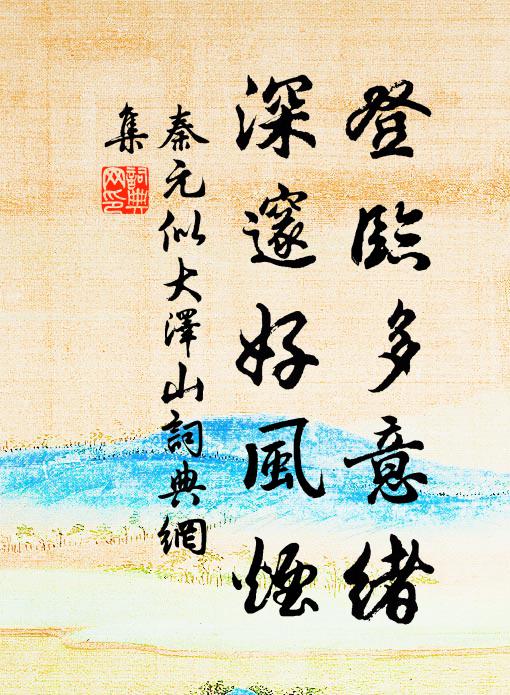 登臨多意緒
深邃好風煙
秦元似大澤山詞典網
集
詞典網印